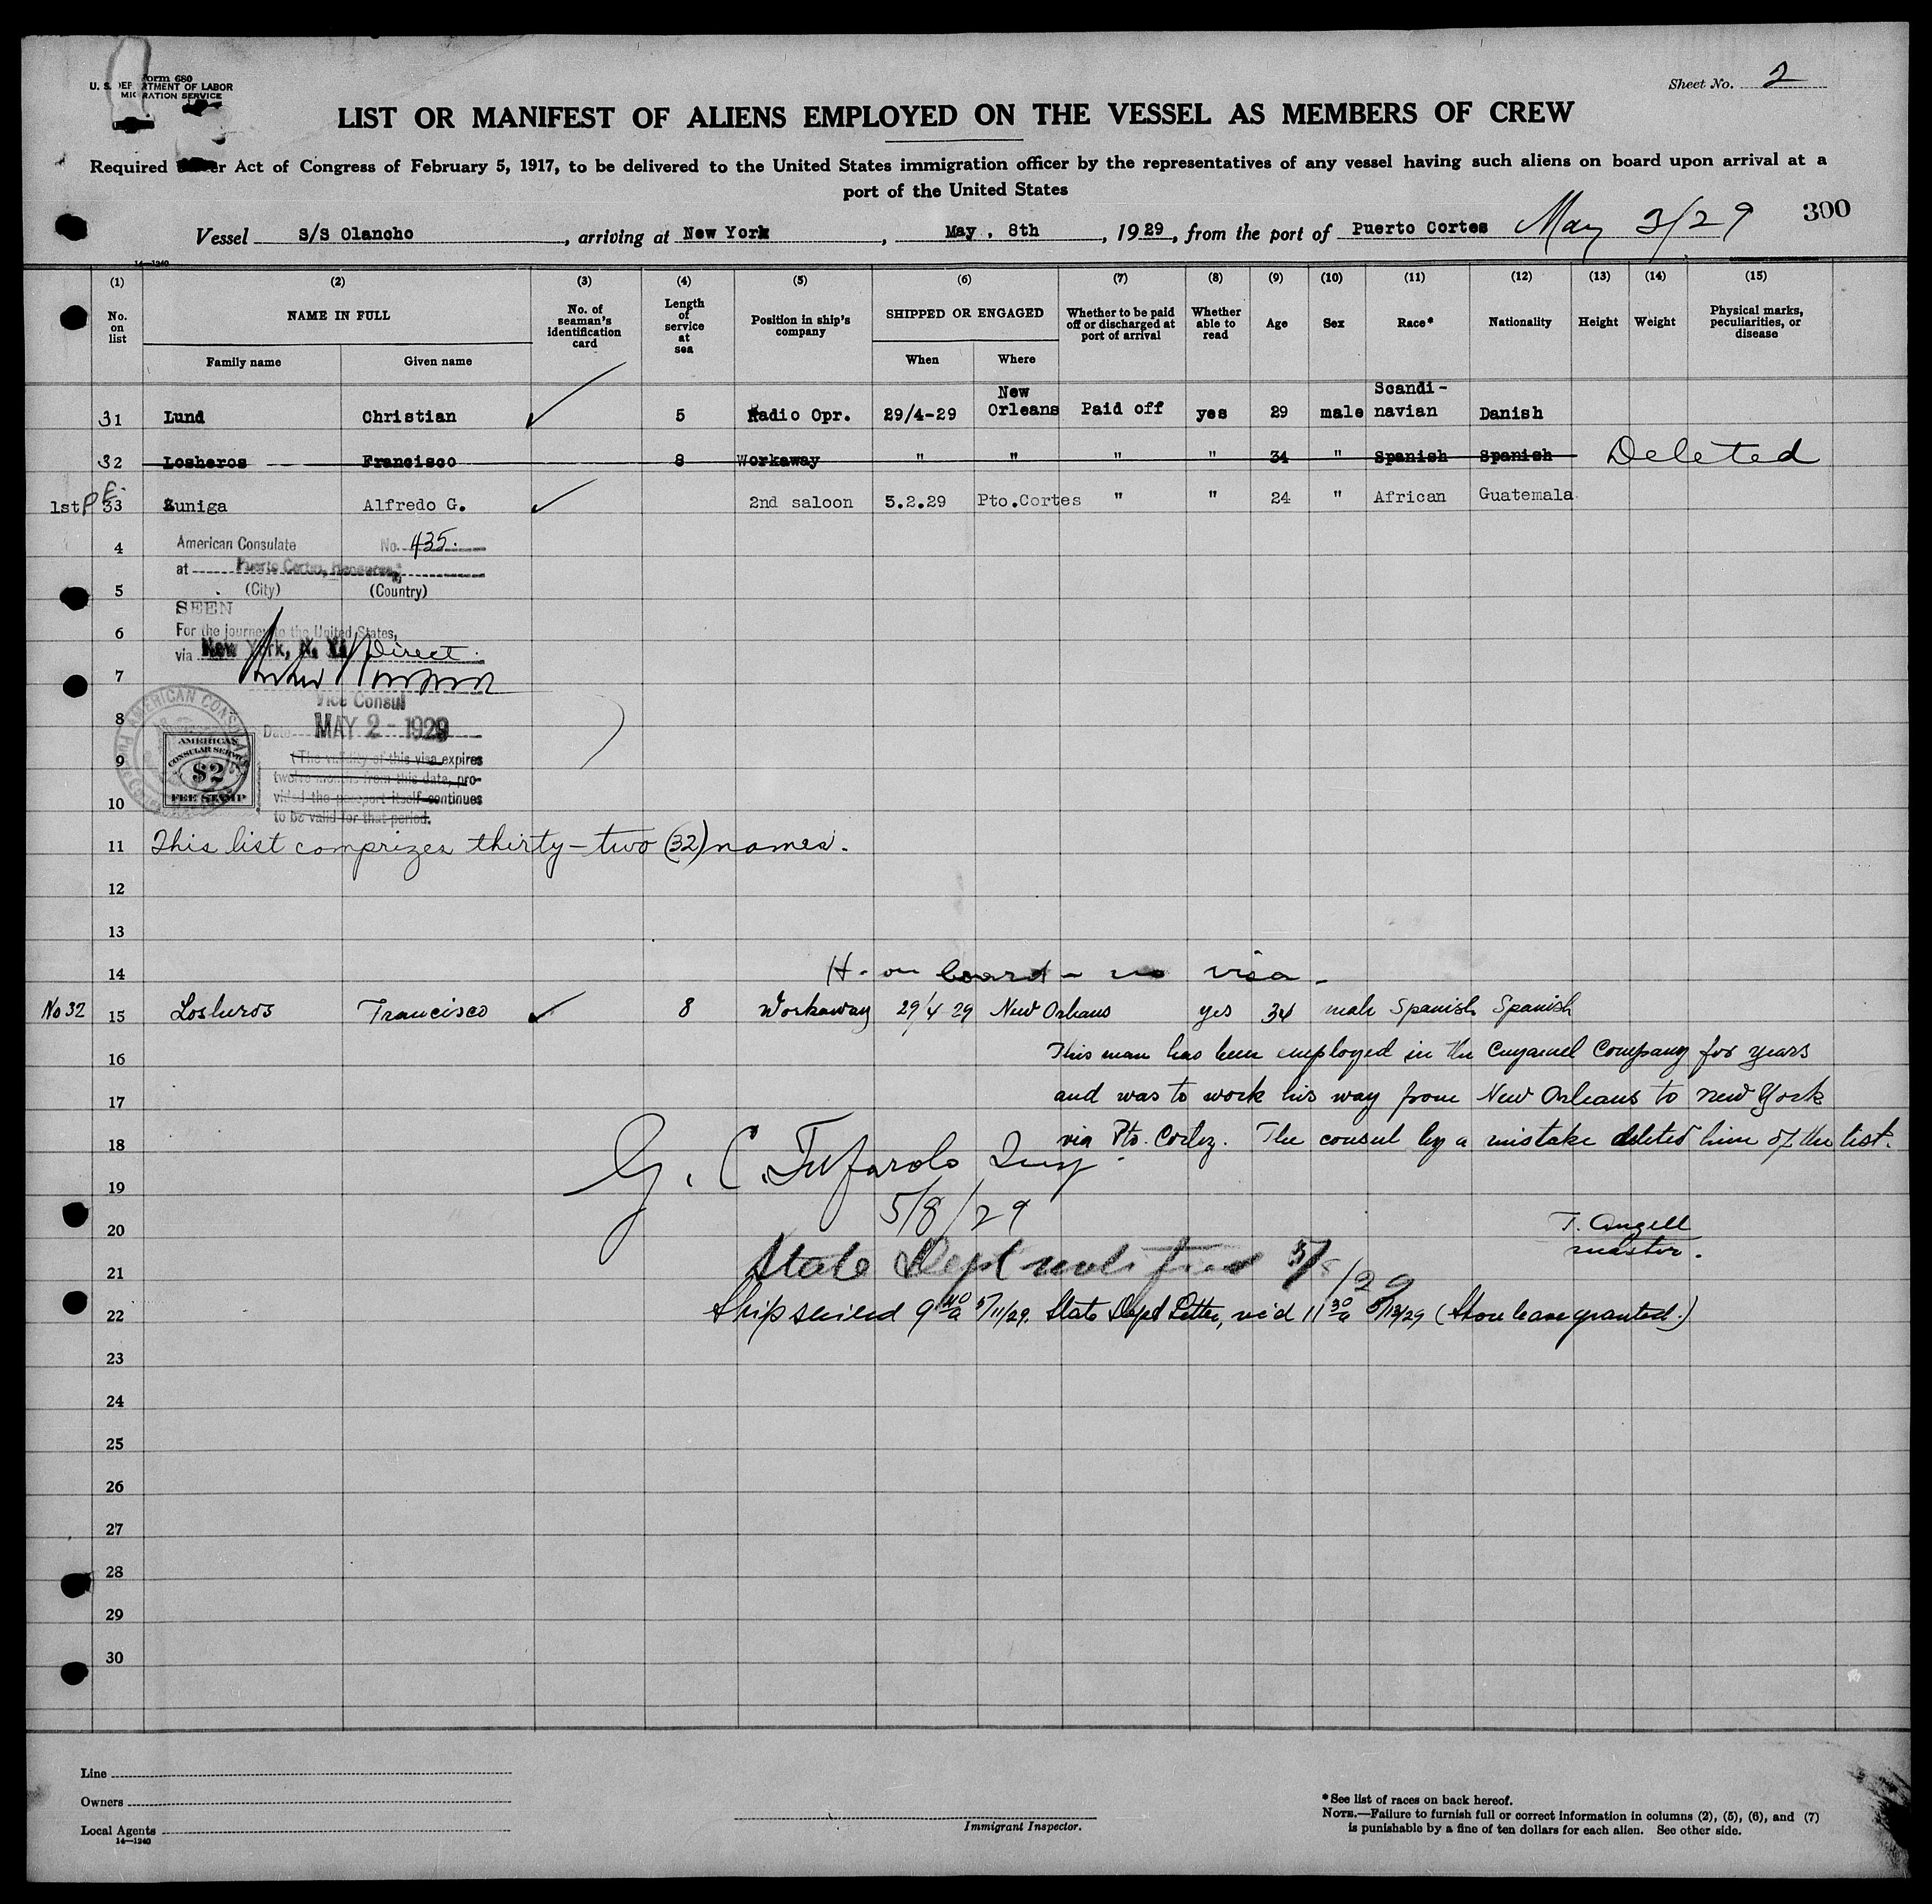 Form 680
U. S. DEPARTMENT OF LABOR
IMMIGRATION SERVICE
Sheet No. 2
LIST OR MANIFEST OF ALIENS EMPLOYED ON THE VESSEL AS MEMBERS OF CREW
Required under Act of Congress of February 5, 1917, to be delivered to the United States immigration officer by the representatives of any vessel having such aliens on board upon arrival at a
port of the United States
300
Vessel S/S Olancho, arriving at New York, May, 8th, 1929, from the port of Puerto Cortes May 3/29
14—1240
(1) (2) (3) (4) (5) (6) (7) (8) (9) (10) (11) (12) (13) (14) (15)
No. on list NAME IN FULL Family name Given name No. of seaman's identification card Length of service at sea Position in ship's company SHIPPED OR ENGAGED When Where Whether to be paid off or discharged at port of arrival Whether able to read Age Sex Race* Nationality Height Weight Physical marks, peculiarities, or disease
31 Lund Christian 5 Radio Opr. 29/4-29 New Orleans Paid off yes 29 male Scandi-navian Danish
32 Losheros Francisco 8 Workaway " " " " 34 " Spanish Spanish Deleted
1st P E. 33 Zuniga Alfredo G. 2nd saloon 5.2.29 Pto.Cortes " " 24 " African Guatemala
4 American Consulate No. 435.
at Puerto Cortes, Honduras
5 (City) (Country)
SEEN
6 For the journey to the United States,
via New York, N. Y. Direct.
7
Vice Consul
8 Date MAY 2 - 1929
AMERICAN CONSULATE
AMERICAN CONSULAR SERVICE $2 FEE STAMP
9 (The validity of this visa expires
twelve months from this date, pro-
10 vided the passport itself continues
to be valid for that period.
11 This list comprizes thirty-two (32) names.
12
13
14 H - on board - no visa -
No 32 15 Losheros Francisco 8 Workaway 29/4 29 New Orleans yes 34 male Spanish Spanish
16 This man has been employed in the Cuyamel Company for years
17 and was to work his way from New Orleans to New York
18 via Pto. Cortez. The consul by a mistake deleted him of the list.
G. C. Tufarolo Insp
19
5/8/29
20 T. Angell
master.
21 State Dept notified 5/8/29
22 Ship sailed 9 40 a 5/11/29. State Dept Letter, rec'd 11 30 a 5/13/29 (Shore leave granted.)
23
24
25
26
27
28
29
30
Line
Owners
Local Agents
14—1240
Immigrant Inspector.
*See list of races on back hereof.
NOTE.—Failure to furnish full or correct information in columns (2), (5), (6), and (7)
is punishable by a fine of ten dollars for each alien. See other side.